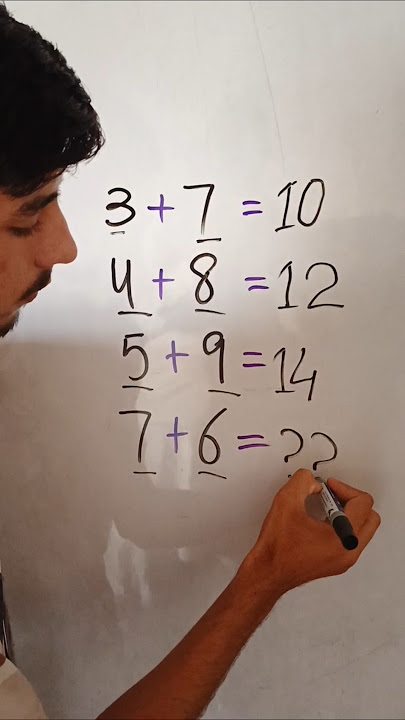 3 + 7 = 10
4 + 8 = 12
5 + 9 = 14
7 + 6 = ??